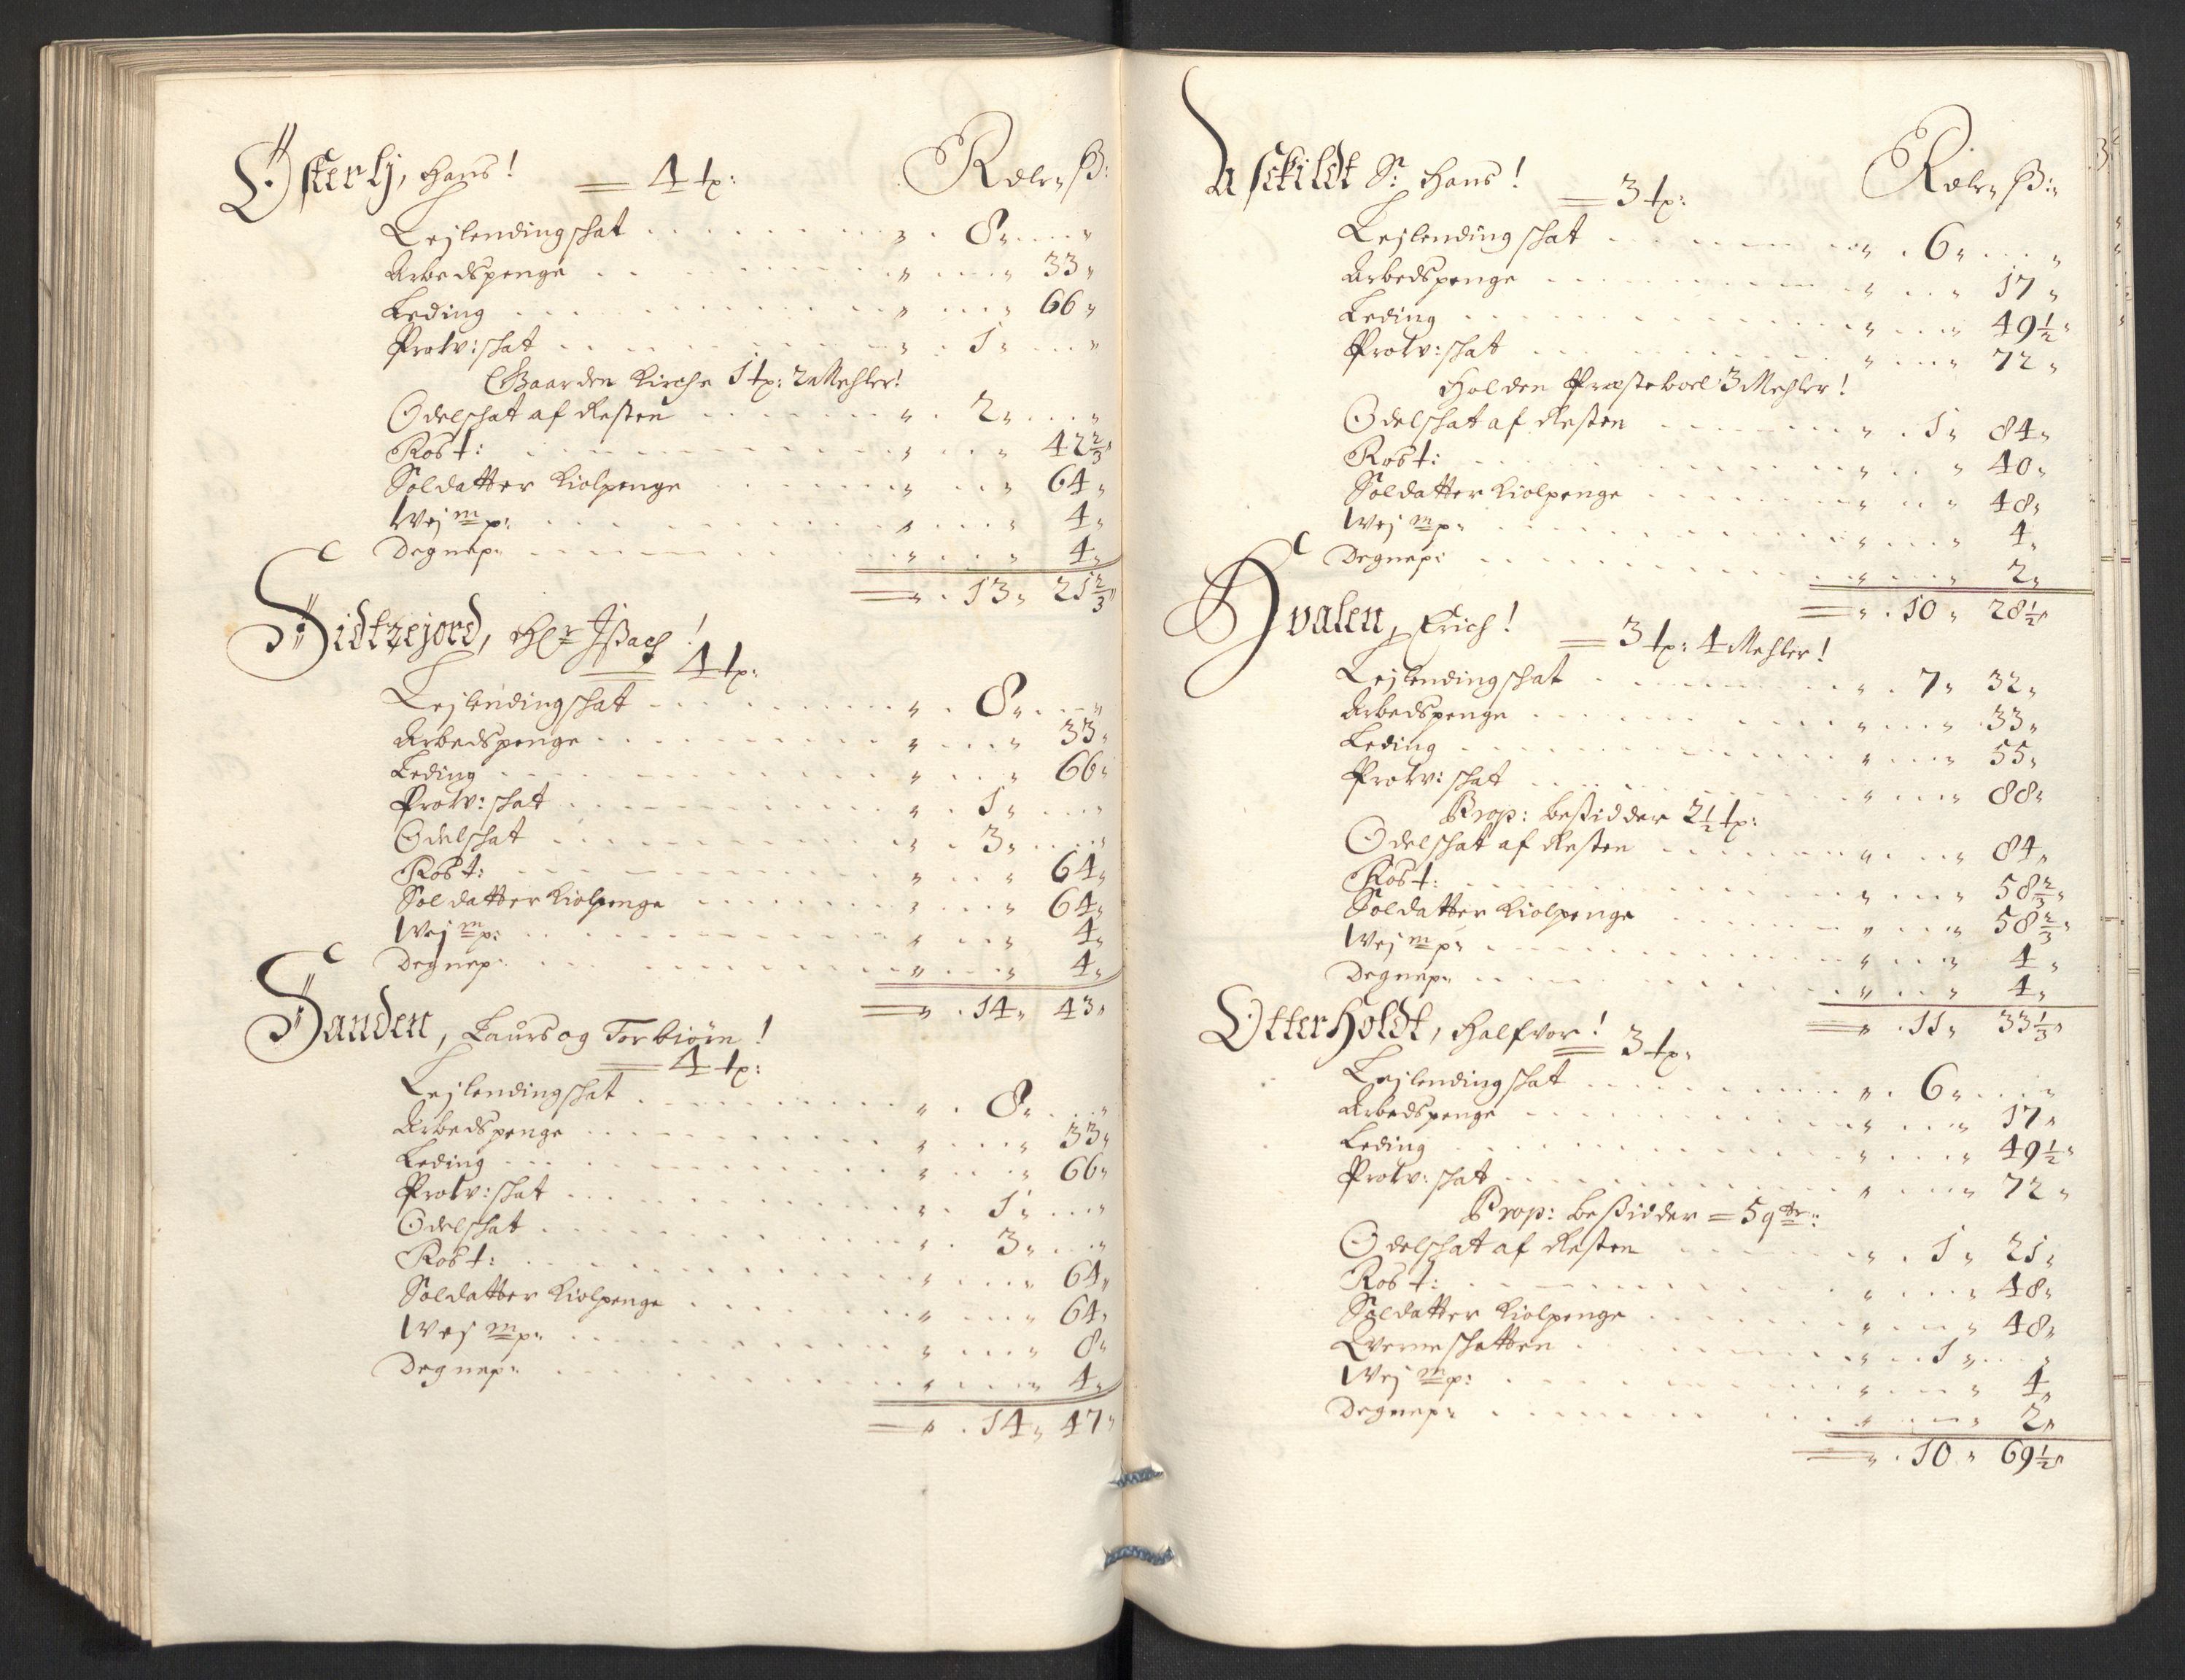 Østerlj, Hans! = 4 tp: Rdlr, ß:
Lejlendingschat . . . „ . 8„ . . „
Arbedspenge . . . „ . . „ 33„
Leding . . . „ . . „ 66„
Protv: schat . . . „ . 1„ . . „
Gaarden Kirche 1 tp: 2 Mehler!
Odelschat af Resten . . . „ . 2„ . . „
Ros t: . . . „ . . „ 42 2/3„
Soldatter Kiolpenge . . . „ . . „ 64„
Wej m p: . . . „ . . „ 4„
Degnep: . . . „ . . „ 4„
= „ . 13„ 21 2/3„
Sidtzejord, Hr Jßach! = 4 tp:
Lejlendingschat . . . „ . 8„ . . „
Arbedspenge . . . „ . . „ 33„
Leding . . . „ . . „ 66„
Protv: schat . . . „ . 1„ . . „
Odelschat . . . „ . 3„ . . „
Ros t: . . . „ . . „ 64„
Soldatter Kiolpenge . . . „ . . „ 64„
Wej m p: . . . „ . . „ 4„
Degnep: . . . „ . . „ 4„
= „ . 14„ 43„
Sanden, Laurs og Torbiørn!
= 4 tp:
Lejlendingschat . . . „ . 8„ . . „
Arbedspenge . . . „ . . „ 33„
Leding . . . „ . . „ 66„
Protv: schat . . . „ . 1„ . . „
Odelschat . . . „ . 3„ . . „
Ros t: . . . „ . . „ 64„
Soldatter Kiolpenge . . . „ . . „ 64„
Wej m p: . . . „ . . „ 8„
Degnep: . . . „ . . „ 4„
= „ . 14„ 47„
Asckildt Sr: Hans! = 3 tp: Rdlr, ß:
Lejlendingschat . . . „ . 6„ . . „
Arbedspenge . . . „ . . „ 17„
Leding . . . „ . . „ 49 1/2„
Protv: schat . . . „ . . „ 72„
Holden Præsteboel 3 Mehler!
Odelschat af Resten . . . „ . 1„ 84„
Ros t: . . . „ . . „ 40„
Soldatter Kiolpenge . . . „ . . „ 48„
Wej m p: . . . „ . . „ 4„
Degnep: . . . „ . . „ 2„
= „ . 10„ 28 1/2„
Hvalen, Erich! = 3 tp: 4 Mehler!
Lejlendingschat . . . „ . 7„ 32„
Arbedspenge . . . „ . . „ 33„
Leding . . . „ . . „ 55„
Protv: schat . . . „ . . „ 88„
Prop: beßidder 2 1/2 tp:
Odelschat af Resten . . . „ . . „ 84„
Ros t: . . . „ . . „ 58 2/3„
Soldatter Kiolpenge . . . „ . . „ 58 2/3„
Wej m p: . . . „ . . „ 4„
Degnep: . . . „ . . „ 4„
= „ . 11„ 33 1/3„
Otterholdt, Halfvor! = 3 tp:
Lejlendingschat . . . „ . 6„ . . „
Arbedspenge . . . „ . . „ 17„
Leding . . . „ . . „ 49 1/2„
Protv: schat . . . „ . . „ 72„
Prop: beßidder = 5 qtr:
Odelschat af Resten . . . „ . 1„ 21„
Ros t: . . . „ . . „ 48„
Soldatter Kiolpenge . . . „ . . „ 48„
Qverneschatten . . . „ . 1„ . . „
Wej m p: . . . „ . . „ 4„
Degnep: . . . „ . . „ 2„
= „ . 10„ 69 1/2„